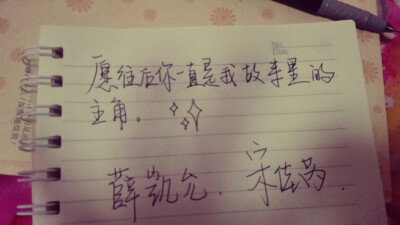 愿往后你一直是我故事里的
主角.
薛凯允. 宋佳